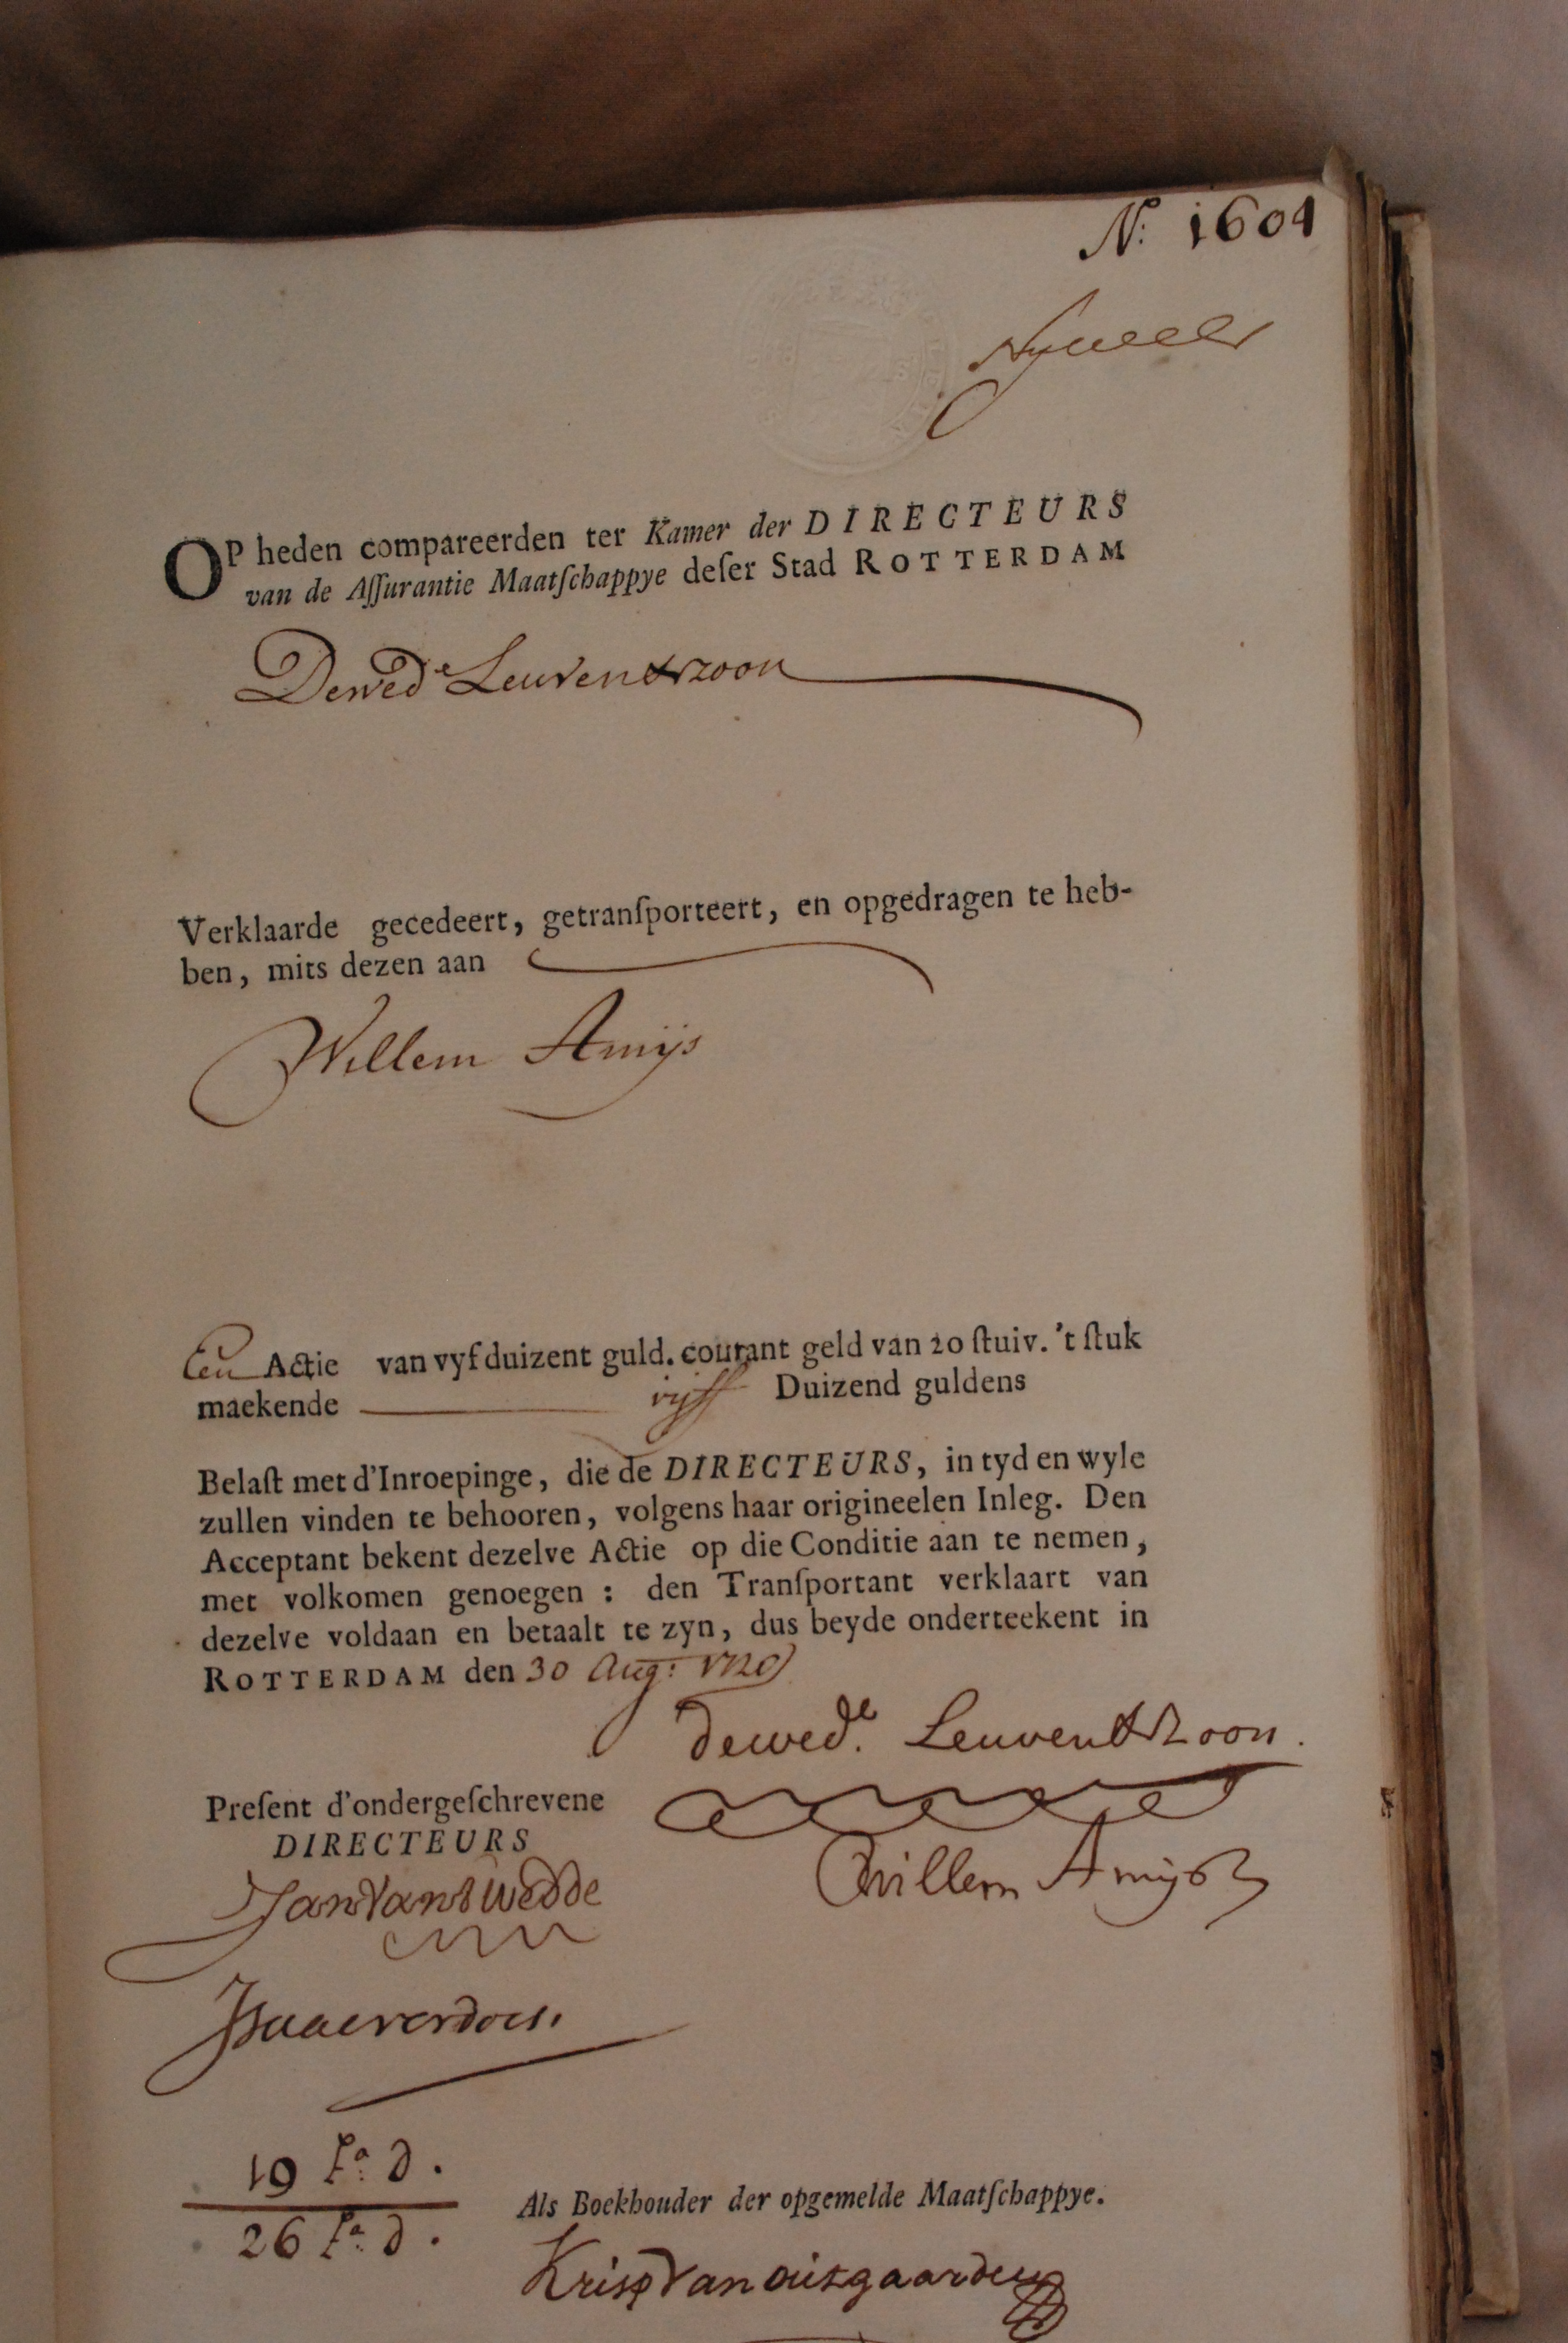 No. 1604
OP heden compareerden ter Kamer der DIRECTEURS
van de Aſſurantie Maatſchappye deſer Stad ROTTERDAM
De wed.e Leuvendrzoon
Verklaarde gecedeert, getranſporteert, en opgedragen te heb-
ben, mits dezen aan
Willem Amijs
Een Actie van vyf duizent guld. courant geld van 20 ſtuiv. 't ſtuk
maekende vijff Duizend guldens
Belaſt met d'Inroepinge, die de DIRECTEURS, in tyd en wyle
zullen vinden te behooren, volgens haar origineelen Inleg. Den
Acceptant bekent dezelve Actie op die Conditie aan te nemen,
met volkomen genoegen: den Tranſportant verklaart van
dezelve voldaan en betaalt te zyn, dus beyde onderteekent in
ROTTERDAM den 30 Aug: 1720
de wed.e Leuvendrzoon.
Preſent d'ondergeſchrevene
DIRECTEURS
Willem Amijs
Jan Vant Wedde
19 d.
26 d.
Als Boekhouder der opgemelde Maatſchappye.
Krisp Van